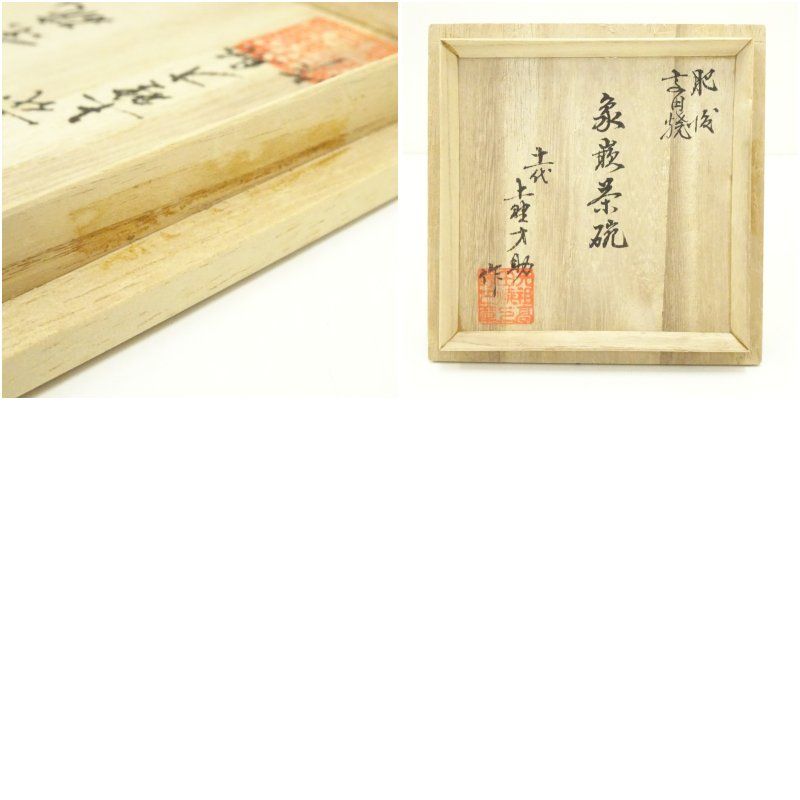 肥後
高田焼
象嵌茶碗
十一代
上野才助
作